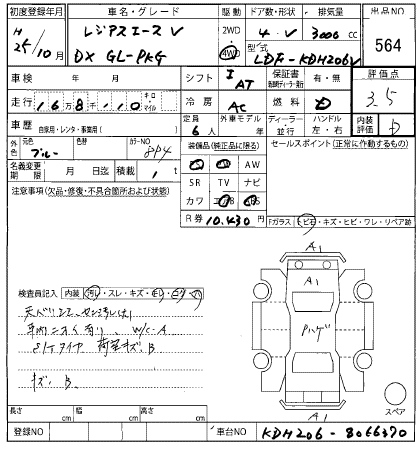 初度登録年月 車名・グレード 駆動 ドア数・形状 排気量 出品NO
H 25/10月 レジアスエースV 2WD 4WD 4・V 3000cc 564
DX GL-PKG 型式 LDF-KDH206V
車検 年 月 シフト I AT 保証書 有・無 評価点
走行 168,110 キロ マイル 冷房 AC 燃料 D 3.5
車歴 自家用・レンタ・事業用( ) 定員 6人 外車モデル 年 ディーラー・並行 ハンドル 左・右 内装評価 D
外色 元色 ブルー 色替 カラーNO 8P4 装備品(純正品に限る) セールスポイント(正常に作動するもの)
名義変更期限 月 日迄 積載 1t PS PW AW
注意事項(欠品・修復・不具合箇所および状態) SR TV ナビ
カワ エアB ABS
R券 10,430円 Fガラス トビ石・キズ・ヒビ・ワレ・リペア跡
A1
A1
検査員記入 内装 汚レ・スレ・キズ
天バリ
車内ニオイ有り、W/C-A
荷室キズ、B
Pハゲ
キズ、B
スペア
A1
長さ cm 幅 cm 高さ cm
登録NO 車台NO KDH206-8066370